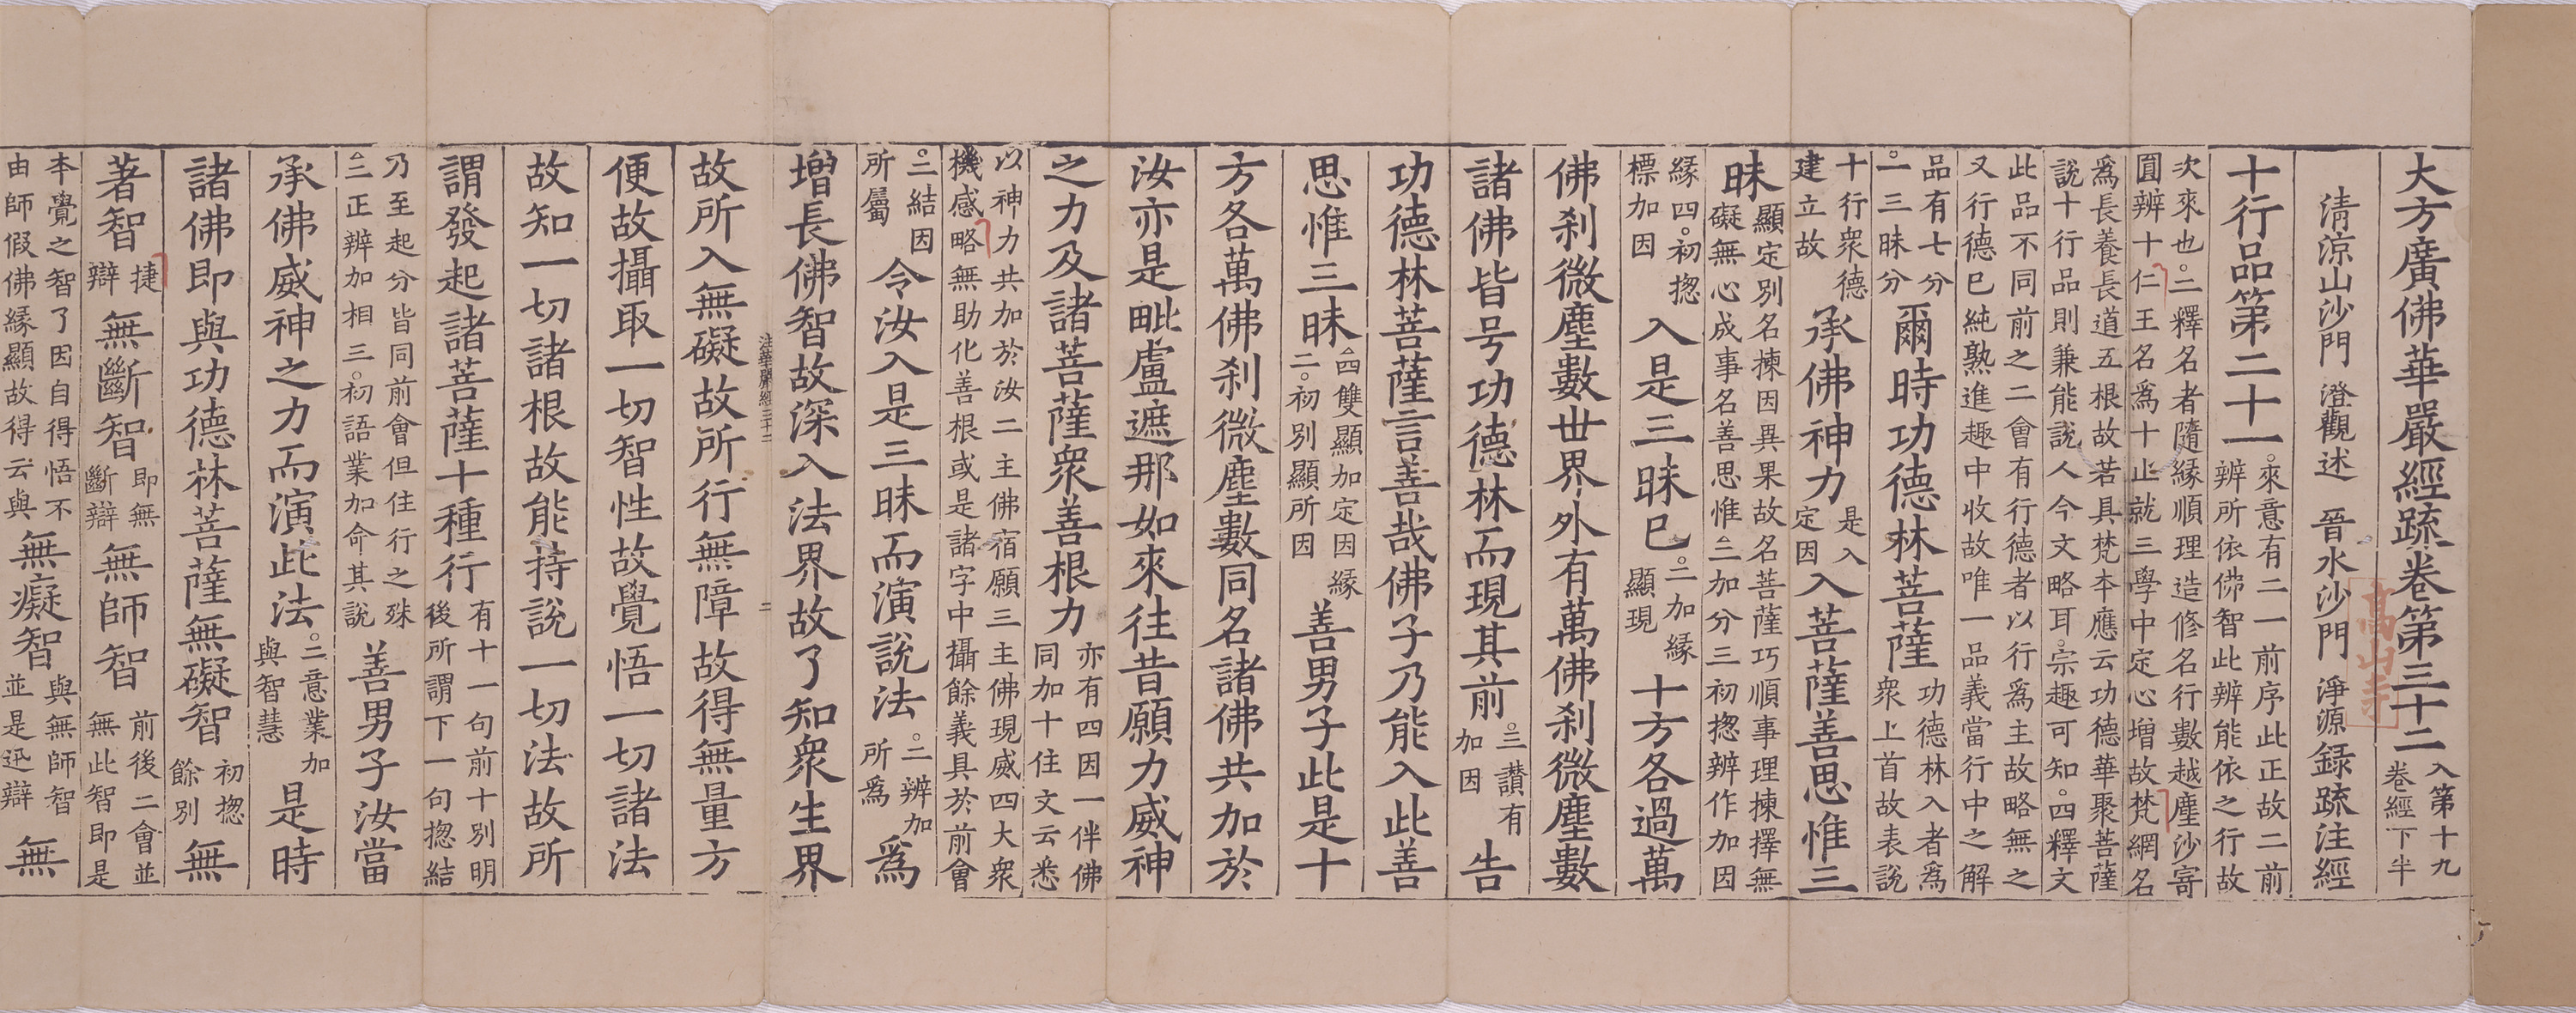 大方廣佛華嚴經䟽卷第三十二入第十九卷經下半
清涼山沙門 澄觀述 晉水沙門 淨源録䟽注經
十行品第二十一。來意有二一前序此正故二前辨所依佛智此辨能依之行故
次來也。二釋名者隨緣順理造修名行數越塵沙寄圓辨十仁王名爲十止就三學中定心增故梵網名
爲長養長道五根故若具梵本應云功德華聚菩薩說十行品則兼能說人今文略耳。宗趣可知。四釋文
此品不同前之二會有行德者以行爲主故略無之又行德已純熟進趣中收故唯一品義當行中之解
品有七分。一三昧分爾時功德林菩薩功德林入者爲衆上首故表說
十行衆德建立故承佛神力是入定因入菩薩善思惟三
昧顯定別名揀因異果故名菩薩巧順事理揀擇無礙無心成事名善思惟三加分三初揔辨作加因
緣四。初揔標加因入是三昧已。二加緣顯現十方各過萬
佛刹微塵數世界外有萬佛刹微塵數
諸佛皆号功德林而現其前。三讚有加因告
功德林菩薩言善哉佛子乃能入此善
思惟三昧四雙顯加定因緣二。初別顯所因善男子此是十
方各萬佛刹微塵數同名諸佛共加於
汝亦是毗盧遮那如來往昔願力威神
之力及諸菩薩衆善根力亦有四因一伴佛同加十住文云悉
以神力共加於汝二主佛宿願三主佛現威四大衆機感略無助化善根或是諸字中攝餘義具於前會
。二結因所屬令汝入是三昧而演說法。二辨加所爲爲
增長佛智故深入法界故了知衆生界
注華嚴經三十二 二
故所入無礙故所行無障故得無量方
便故攝取一切智性故覺悟一切諸法
故知一切諸根故能持說一切法故所
謂發起諸菩薩十種行有十一句前十別明後所謂下一句揔結
乃至起分皆同前會但住行之殊三正辨加相三。初語業加命其說善男子汝當
承佛威神之力而演此法。二意業加與智慧是時
諸佛即與功德林菩薩無礙智初揔餘別無
著智捷辯無斷智即無斷辯無師智前後二會並無此智即是
本覺之智了因自得悟不由師假佛緣顯故得云與無癡智與無師智並是迅辯無
高山寺